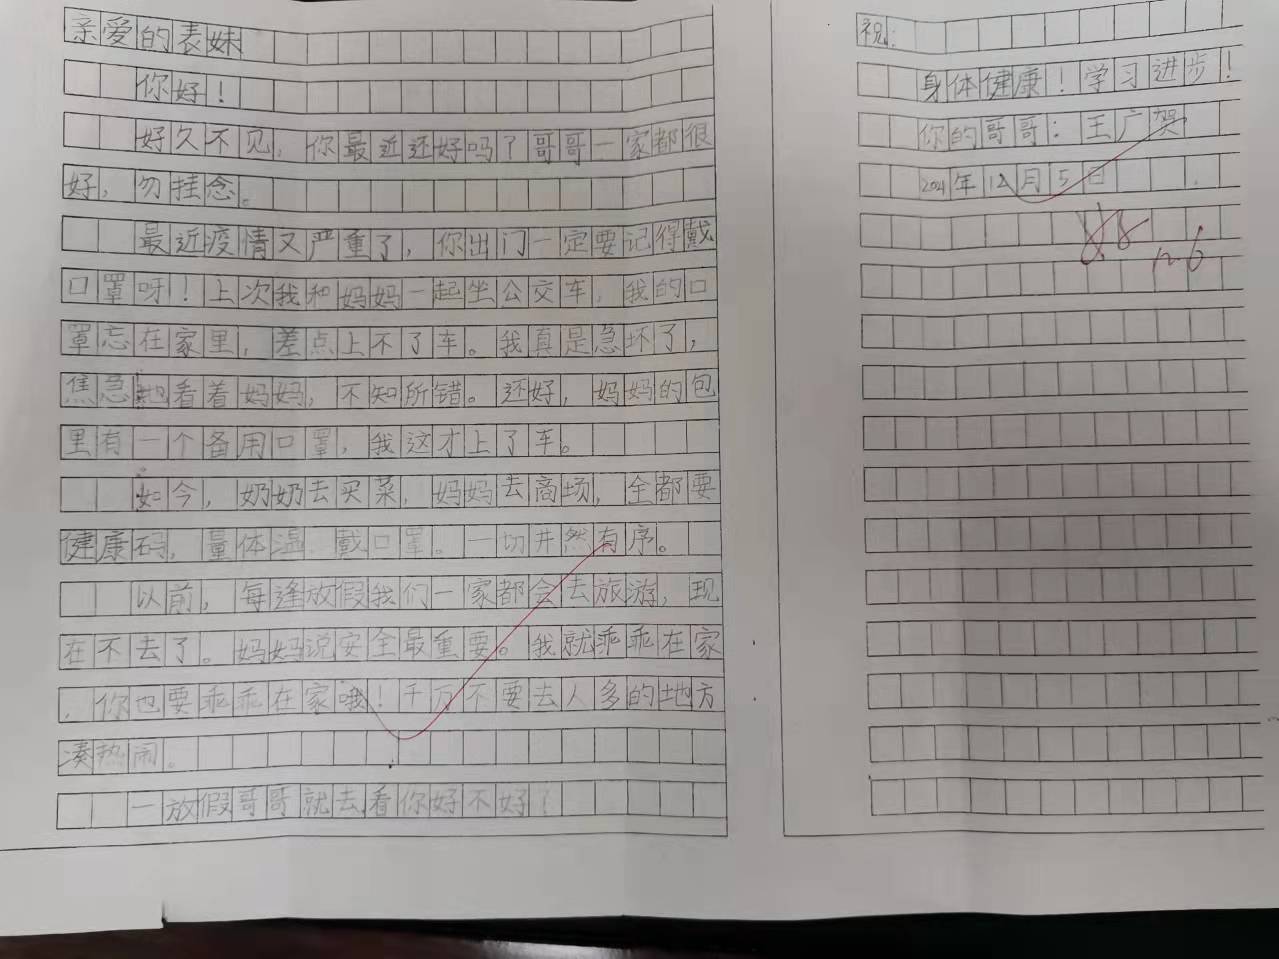 亲爱的表妹
你好！
好久不见，你最近还好吗？哥哥一家都很
好，勿挂念。
最近疫情又严重了，你出门一定要记得戴
口罩呀！上次我和妈妈一起坐公交车，我的口
罩忘在家里，差点上不了车。我真是急坏了，
焦急地看着妈妈，不知所错。还好，妈妈的包
里有一个备用口罩，我这才上了车。
如今，奶奶去买菜，妈妈去商场，全都要
健康码，量体温，戴口罩。一切井然有序。
以前，每逢放假我们一家都会去旅游，现
在不去了。妈妈说安全最重要。我就乖乖在家
，你也要乖乖在家哦！千万不要去人多的地方
凑热闹。
一放假哥哥就去看你好不好？
祝：
身体健康！学习进步！
你的哥哥：王广贺
2021年12月5日
12.6